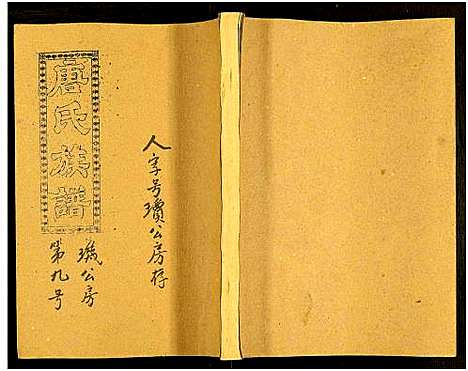 唐氏族譜
人字号瓚公房存
璣公房
第九号